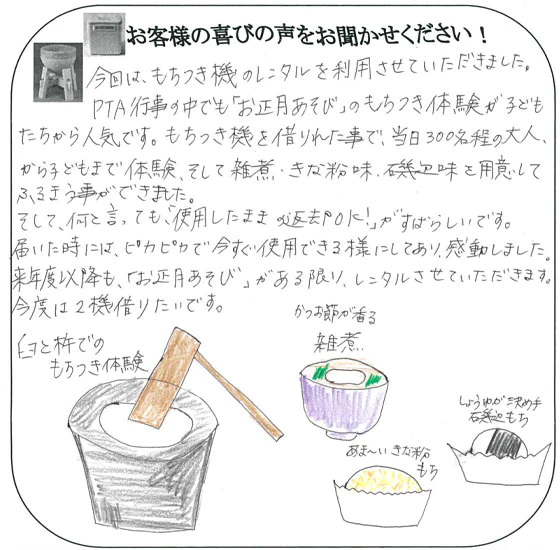 お客様の喜びの声をお聞かせください！
今回は、もちつき機のレンタルを利用させていただきました。
PTA行事の中でも「お正月あそび」のもちつき体験が子ども
たちから人気です。もちつき機を借りれた事で、当日300名程の大人、
から子どもまで体験、そして雑煮・きな粉味、磯辺味と用意して
ふるまう事ができました。
そして、何と言っても、「使用したまま返却OK!」がすばらしいです。
届いた時には、ピカピカで今すぐ使用できる様にしてあり、感動しました。
来年度以降も、「お正月あそび」がある限り、レンタルさせていただきます。
今度は2機借りたいです。
臼と杵での
もちつき体験
かつお節が香る
雑煮
あま〜いきな粉
もち
しょうゆが決め手
磯辺もち